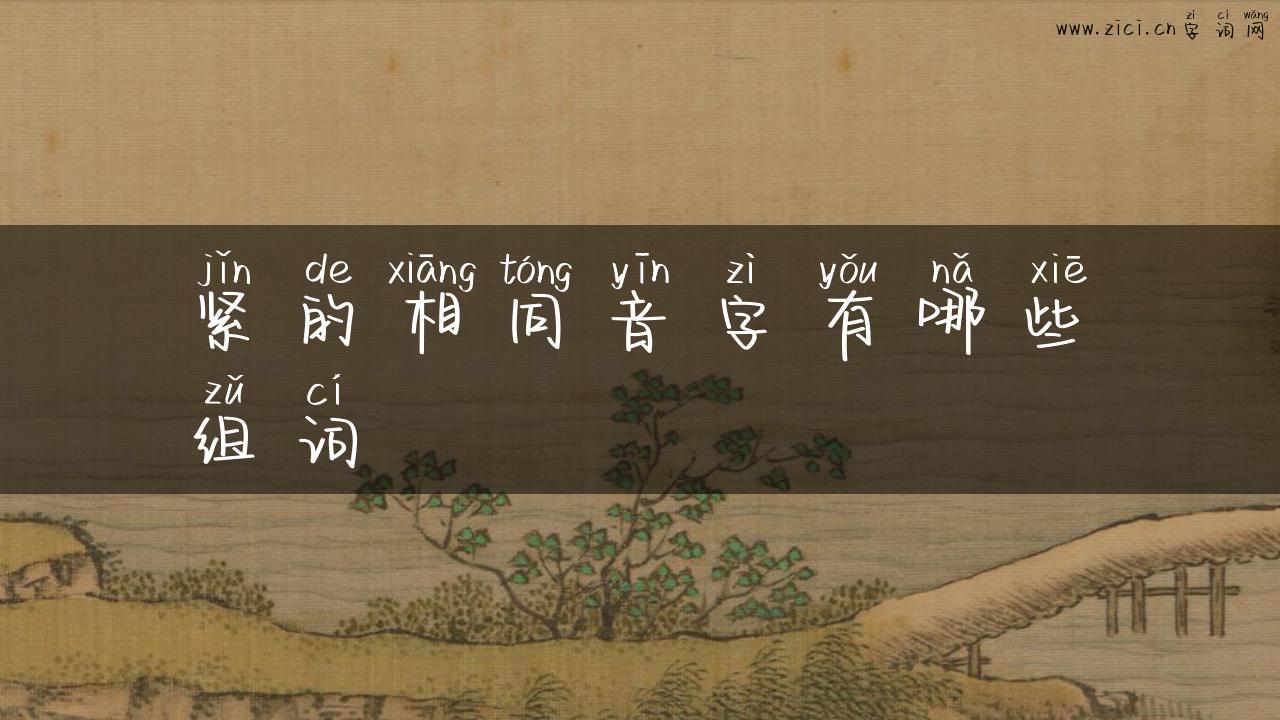 zì cí wǎng
www.zici.cn 字词网
jǐn de xiāng tóng yīn zì yǒu nǎ xiē
紧的相同音字有哪些
zǔ cí
组词